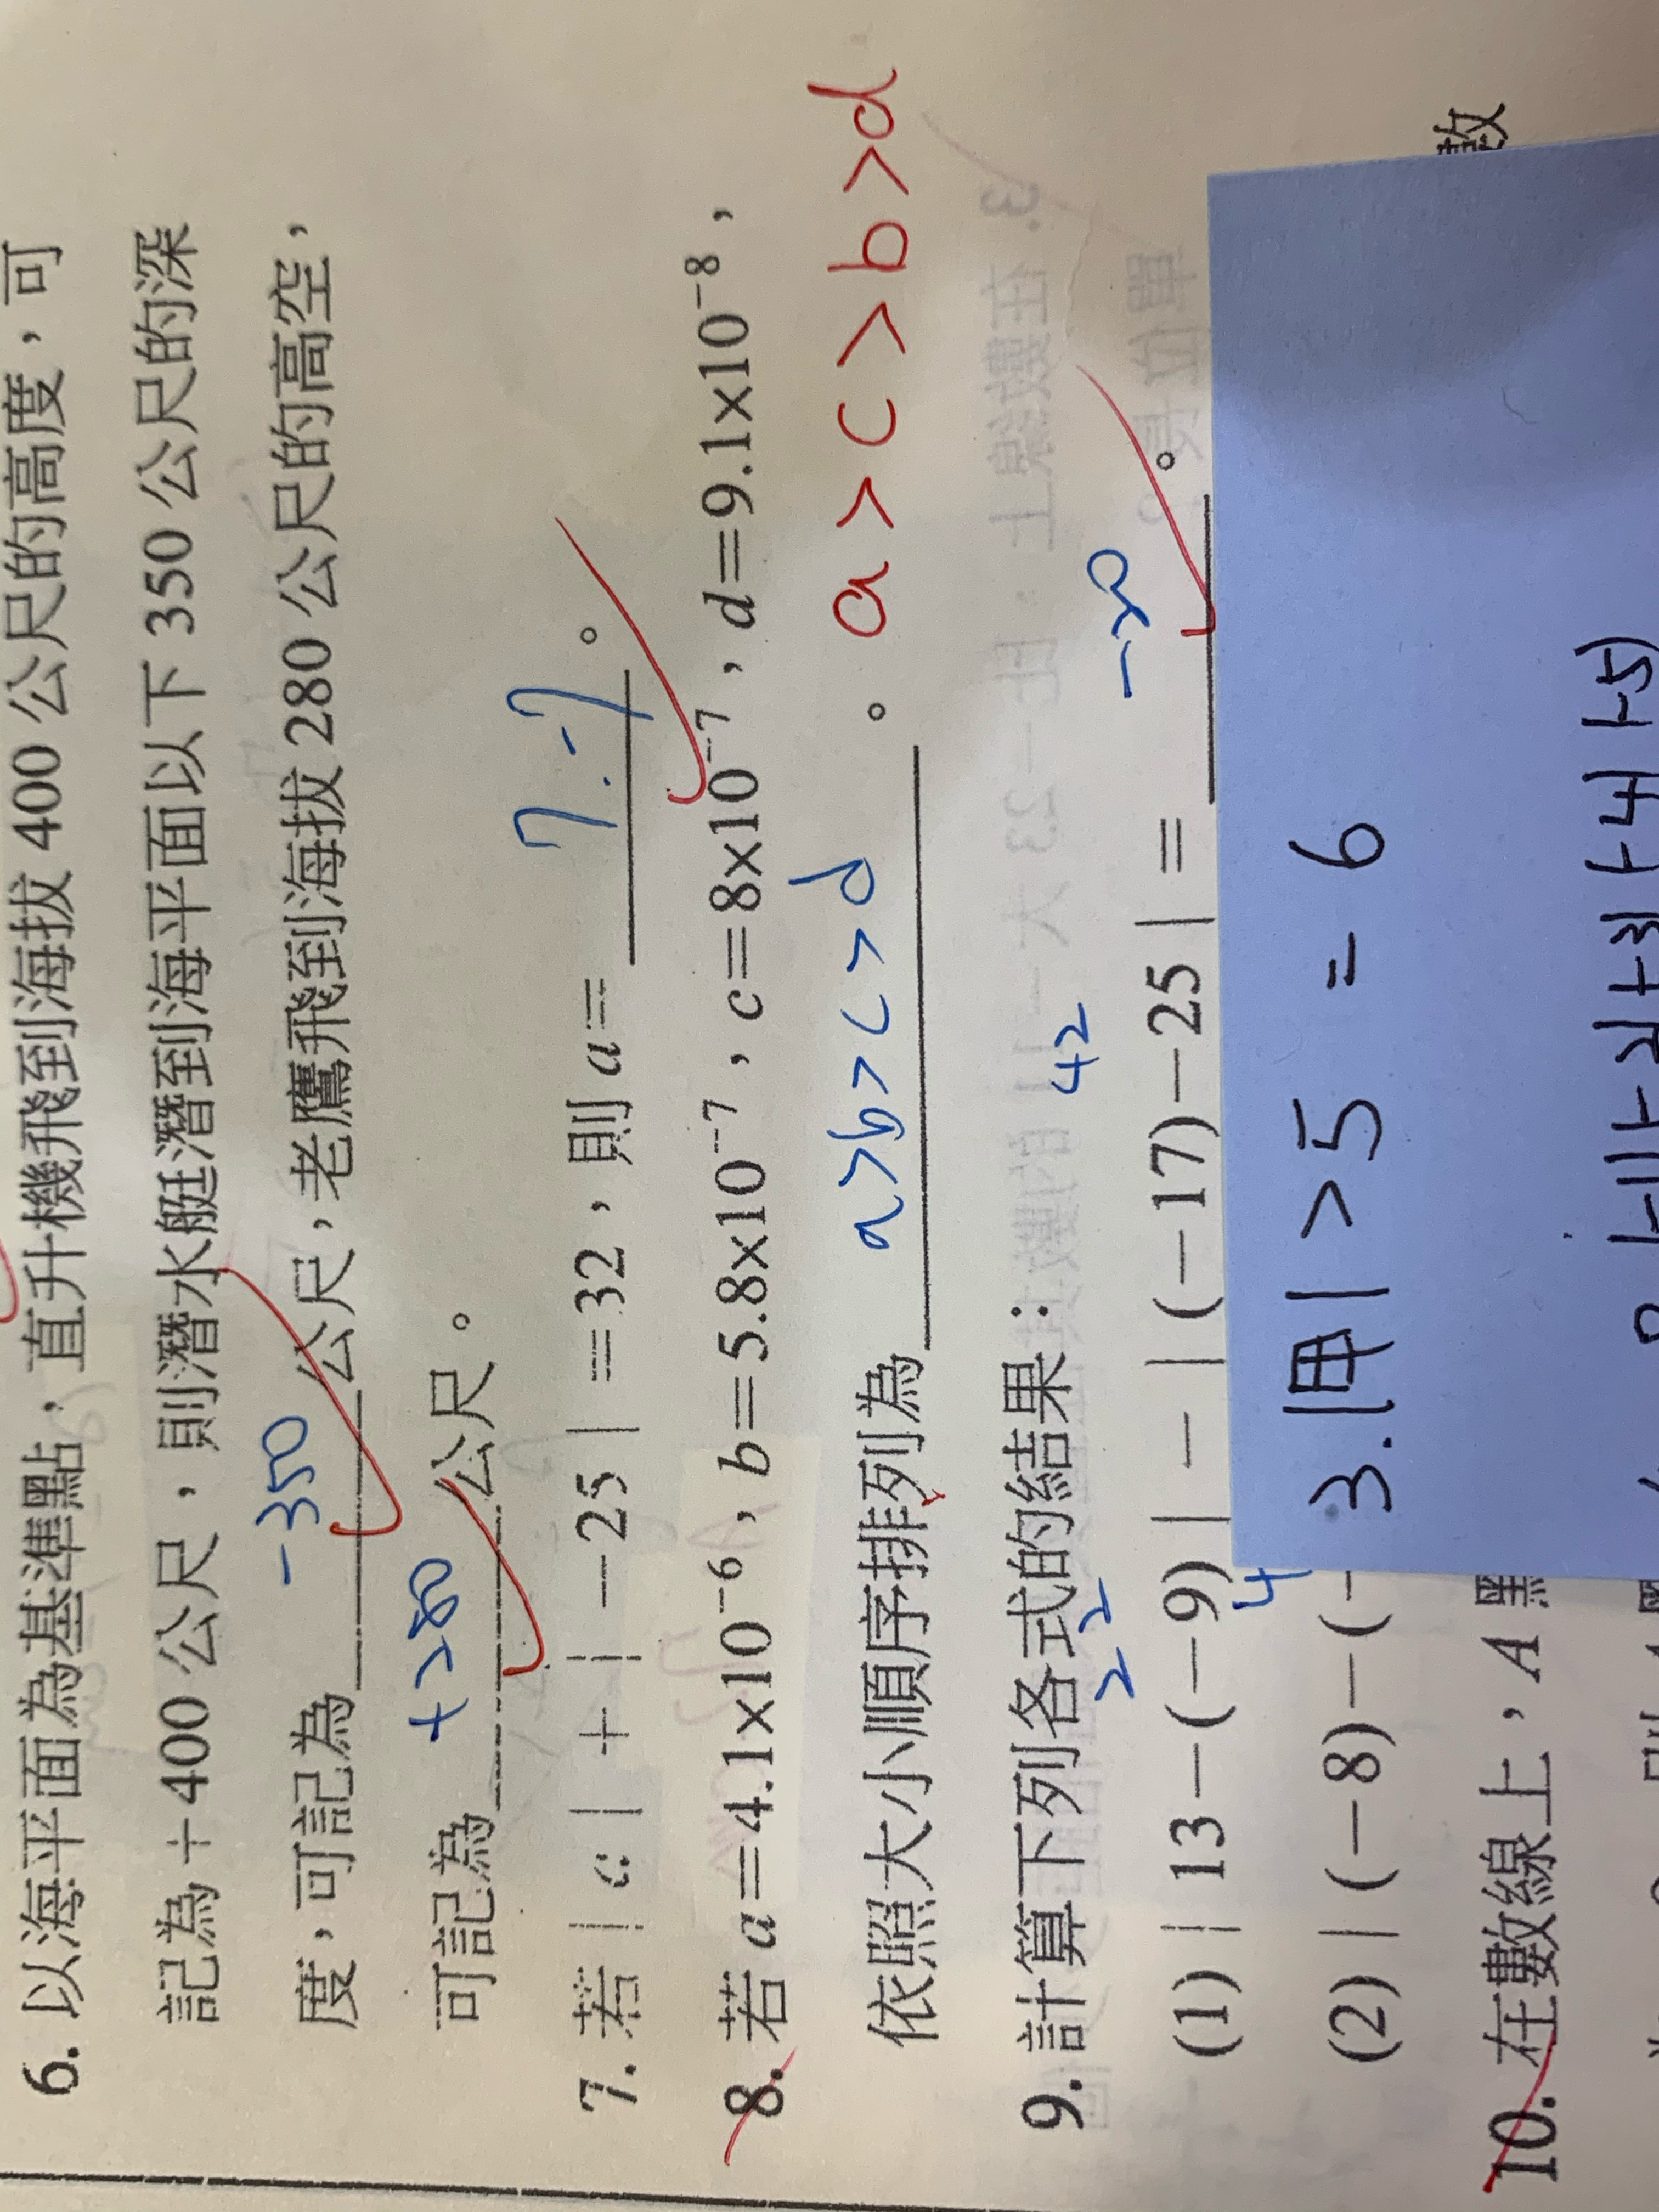 6. 以海平面為基準點，直升機飛到海拔 400 公尺的高度，可
記為+400 公尺，則潛水艇潛到海平面以下 350 公尺的深
度，可記為 -350 公尺，老鷹飛到海拔 280 公尺的高空，
可記為 +280 公尺。
7. 若 | a | + | -25 | =32，則 a= 7.-7 。
8. 若 a=4.1x10⁻⁶，b=5.8x10⁻⁷，c=8x10⁻⁷，d=9.1x10⁻⁸，
依照大小順序排列為 a>b>c>d 。 a>c>b>d
9. 計算下列各式的結果：
22 42
(1) | 13-(-9) | - | (-17)-25 | = -20 。
4
(2) | (-8)-(-
3. |甲| >5 = 6
10. 在數線上，A 數